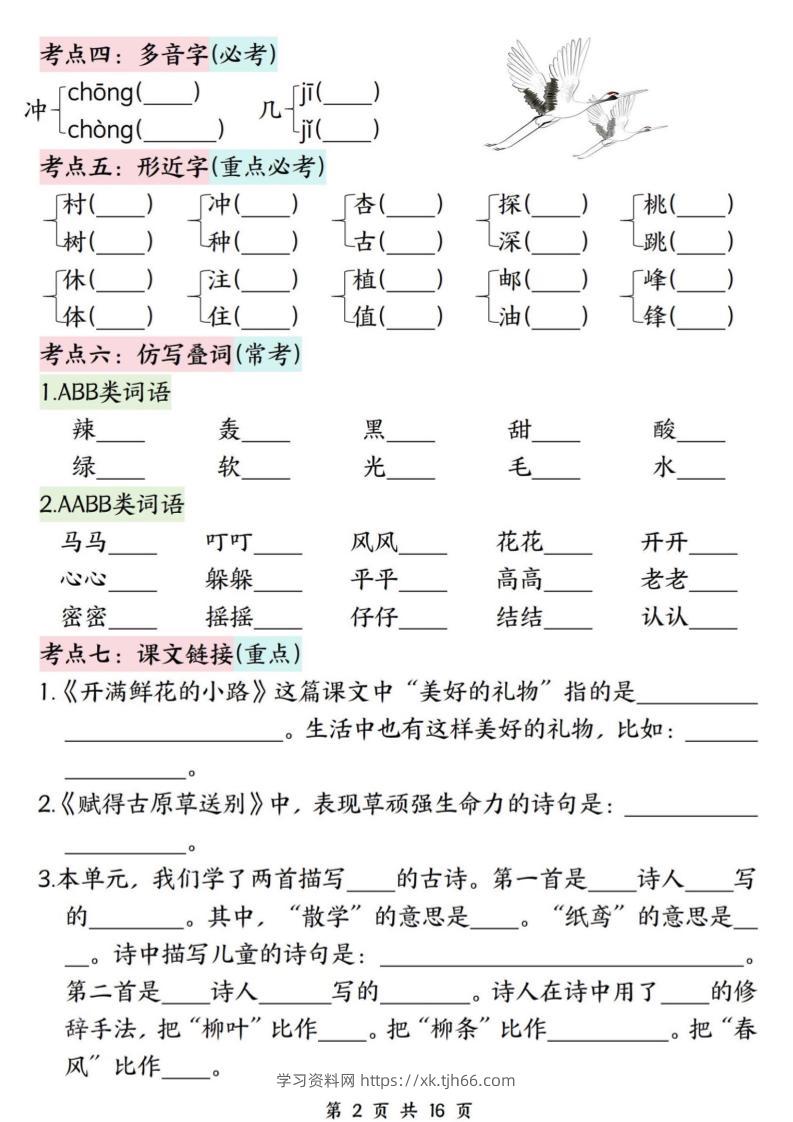 考点四：多音字(必考)
冲 chōng(____) 几 jī(____)
chòng(______) jǐ(____)
考点五：形近字(重点必考)
村(____) 冲(____) 杏(____) 探(____) 桃(____)
树(____) 种(____) 古(____) 深(____) 跳(____)
休(____) 注(____) 植(____) 邮(____) 峰(____)
体(____) 住(____) 值(____) 油(____) 锋(____)
考点六：仿写叠词(常考)
1.ABB类词语
辣____ 轰____ 黑____ 甜____ 酸____
绿____ 软____ 光____ 毛____ 水____
2.AABB类词语
马马____ 叮叮____ 风风____ 花花____ 开开____
心心____ 躲躲____ 平平____ 高高____ 老老____
密密____ 摇摇____ 仔仔____ 结结____ 认认____
考点七：课文链接(重点)
1.《开满鲜花的小路》这篇课文中“美好的礼物”指的是__________
__________________。生活中也有这样美好的礼物，比如：______
__________。
2.《赋得古原草送别》中，表现草顽强生命力的诗句是：___________
__________。
3.本单元，我们学了两首描写____的古诗。第一首是____诗人____写
的________。其中，“散学”的意思是____。“纸鸢”的意思是__
__。诗中描写儿童的诗句是：______________________________。
第二首是____诗人______写的________。诗人在诗中用了____的修
辞手法，把“柳叶”比作____。把“柳条”比作__________。把“春
风”比作____。
学习资料网 https://xk.tjh66.com
第 2 页 共 16 页